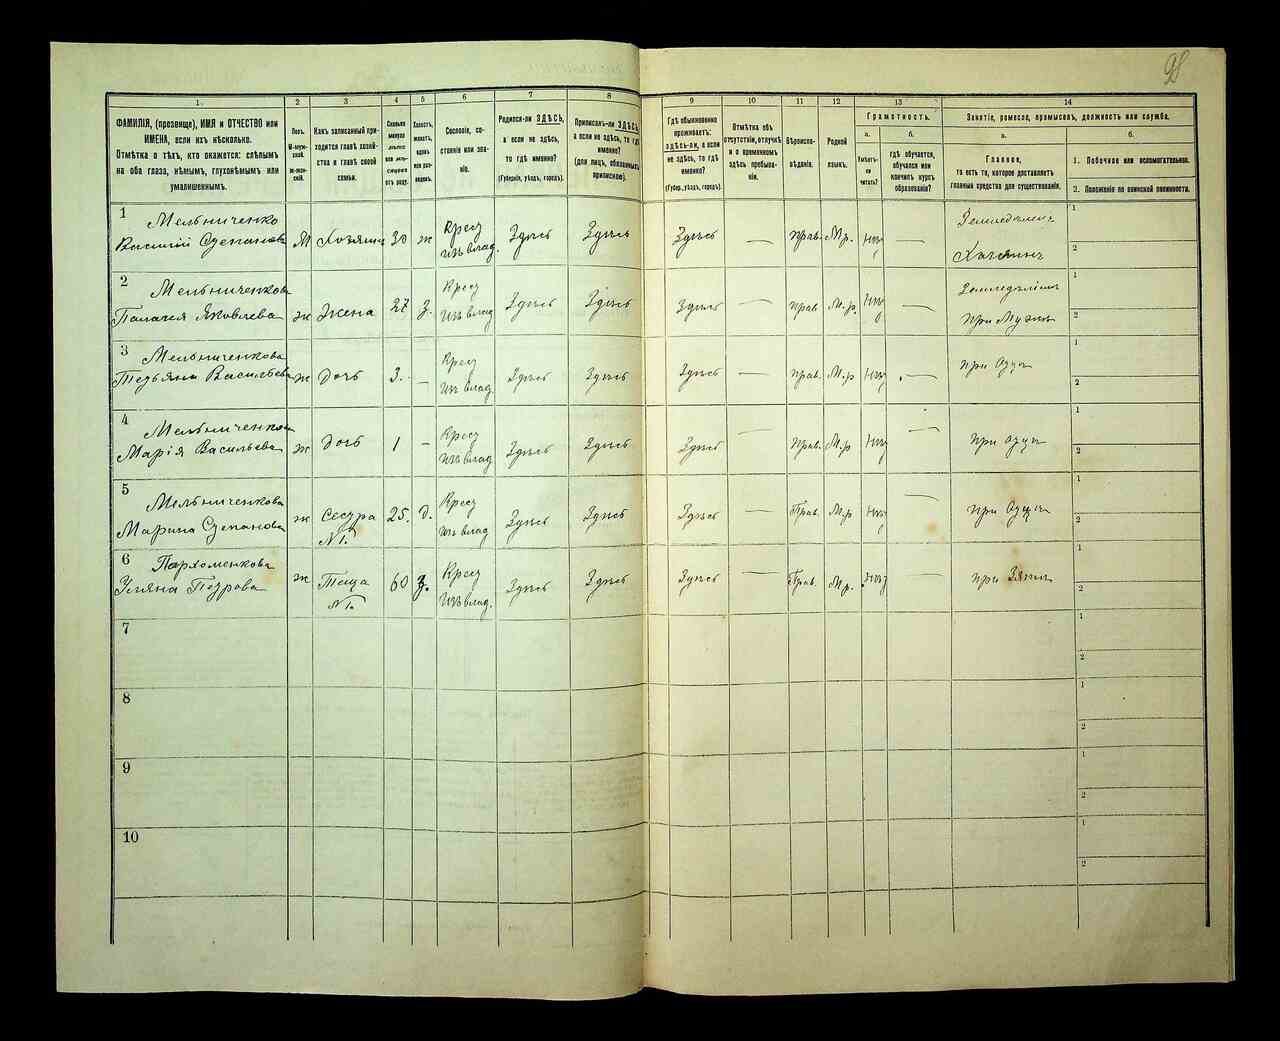 98
1. 2 3 4 5 6 7 8 9 10 11 12 13 14
ФАМИЛІЯ, (прозвище), ИМЯ и ОТЧЕСТВО или
ИМЕНА, если ихъ нѣсколько.
Отмѣтка о тѣхъ, кто окажется: слѣпымъ
на оба глаза, нѣмымъ, глухонѣмымъ или
умалишеннымъ.
Полъ.
М-муж-
ской.
Ж-жен-
скій.
Какъ записанный при-
ходится главѣ хозяй-
ства и главѣ своей
семьи.
Сколько
минуло
лѣтъ
или мѣся-
цевъ
отъ роду.
Холостъ,
женатъ,
вдовъ
или раз-
веденъ.
Сословіе, со-
стояніе или зва-
ніе.
Родился-ли ЗДѢСЬ,
а если не здѣсь,
то гдѣ именно?
(Губернія, уѣздъ, городъ).
Приписанъ-ли ЗДѢСЬ,
а если не здѣсь, то гдѣ
именно?
(для лицъ, обязанныхъ
припискою).
Гдѣ обыкновенно
проживаетъ:
здѣсь-ли, а если
не здѣсь, то гдѣ
именно?
(Губерн., уѣздъ, городъ).
Отмѣтка объ
отсутствіи, отлучкѣ
и о временномъ
здѣсь пребыва-
ніи.
Вѣроиспо-
вѣданіе.
Родной
языкъ.
Грамотность.
а. б.
Умѣетъ-
ли
читать?
гдѣ обучается,
обучался или
кончилъ курсъ
образованія?
Занятіе, ремесло, промыселъ, должность или служба.
а. б.
Главное,
то есть то, которое доставляетъ
главныя средства для существованія.
1. Побочное или вспомогательное.
2. Положеніе по воинской повинности.
1 Мельниченко
Василій Степановъ М Хозяинъ 30 ж Крест изъ влад. Здѣсь Здѣсь Здѣсь — прав. М.р. нѣт — Земледѣлецъ Хазяинъ 1 2
2 Мельниченкова
Палагея Яковлева ж Жена 27 з. Крест изъ влад Здѣсь Здѣсь Здѣсь — прав М.р. нѣт — Земледѣліемъ при Мужѣ 1 2
3 Мельниченкова
Тетьяна Васильева ж Дочь 3. — Крест изъ влад. Здѣсь Здѣсь Здѣсь — прав. М.р нѣт — при Отцѣ 1 2
4 Мельниченкова
Марія Васильева ж Дочь 1 — Крест изъ влад Здѣсь Здѣсь Здѣсь — Прав. М.р нѣт — при отцѣ 1 2
5 Мельниченкова
Марина Степанова ж Сестра №1. 25. д. Крест изъ влад Здѣсь Здѣсь Здѣсь — Прав. М.р нѣт — при Отцѣ 1 2
6 Пархоменкова
Уляна Петрова ж Теща №1. 60 з. Крест изъ влад. Здѣсь Здѣсь Здѣсь — Прав. М.р. нѣт — при Зятѣ 1 2
7 1 2
8 1 2
9 1 2
10 1 2